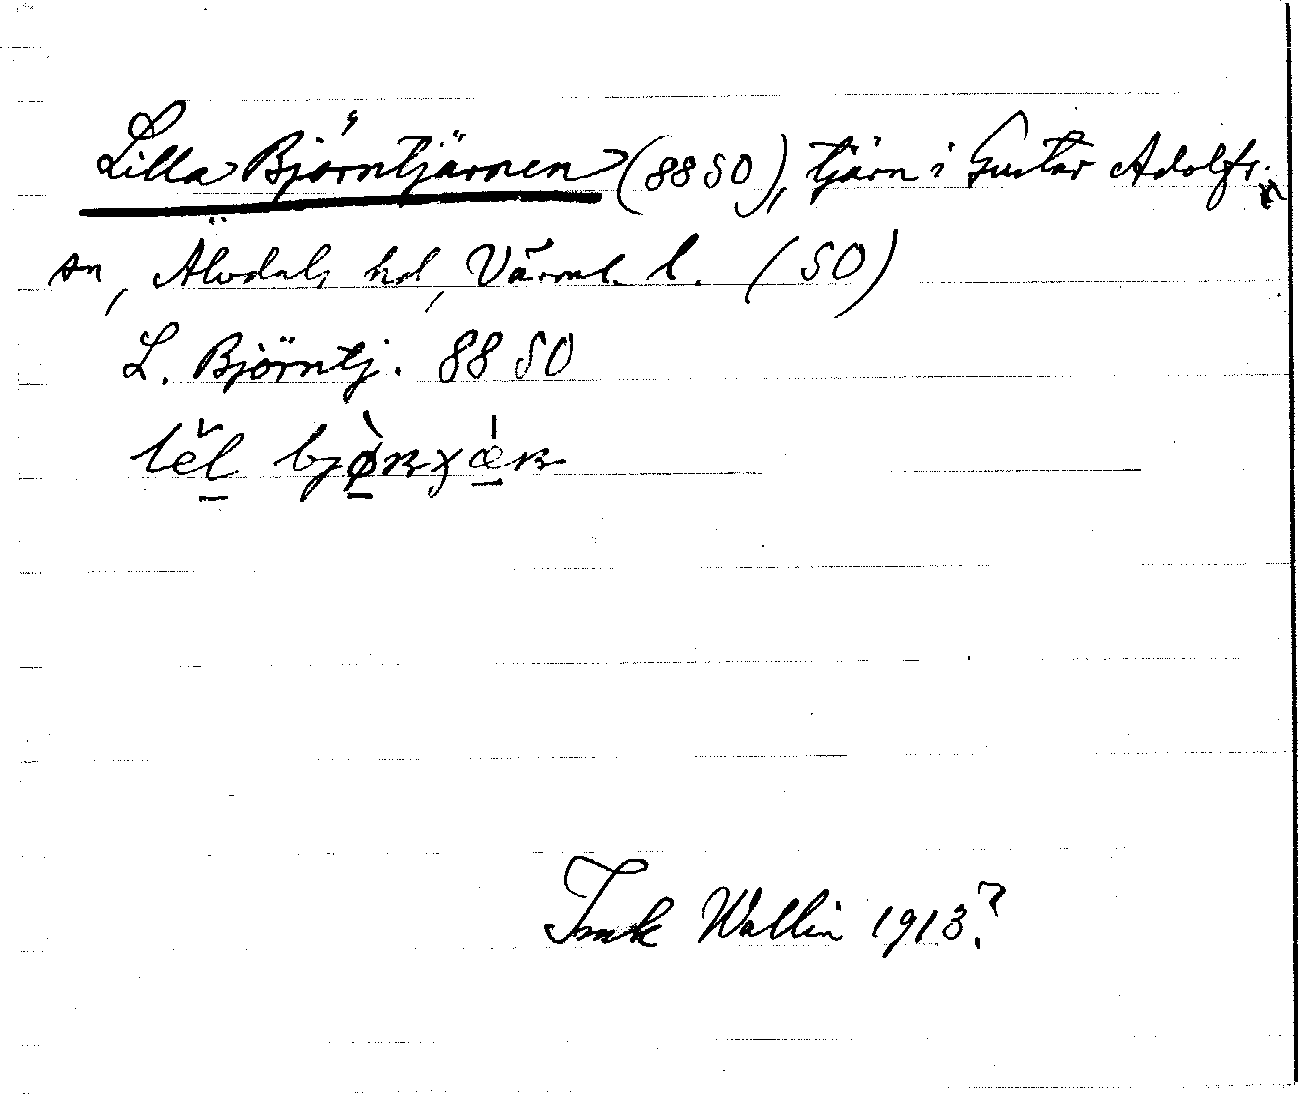 Lilla Björntjärnen (8850), tjärn i Gustav Adolfs
sn, Älvdals hd, Värml. l. (50)
L. Björntj. 8850
Isak Wallin 1913?